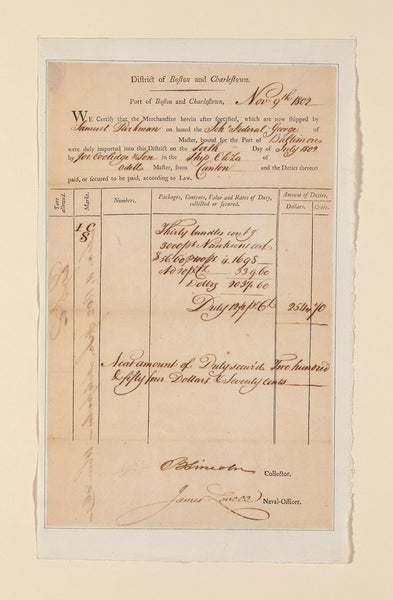 District of Boston and Charlestown.
Port of Boston and Charlestown, Nov 9th 1802
WE Certify that the Merchandize herein after specified, which are now shipped by
Samuel Parkman on board the Schr Federal George of
Master, bound for the Port of Baltimore
were duly imported into this District on the Sixth Day of July 1802
by Jos. Coolidge & Son in the Ship Eliza of
Odell Master, from Canton and the Duties thereon
paid, or secured to be paid, according to Law.
Tare allowed.
Marks.
Numbers.
Packages, Contents, Value and Rates of Duty, collected or secured.
Amount of Duties.
Dollars. Cents.
I C
S
Thirty bundles contg
3000 ps Nankeens cost
1698
339.60
Dollars 2037.60
Duty 254 70
Near amount of Duty secur'd Two hundred
& fifty four Dollars & Seventy Cents
B Lincoln Collector.
James Lovell Naval-Officer.